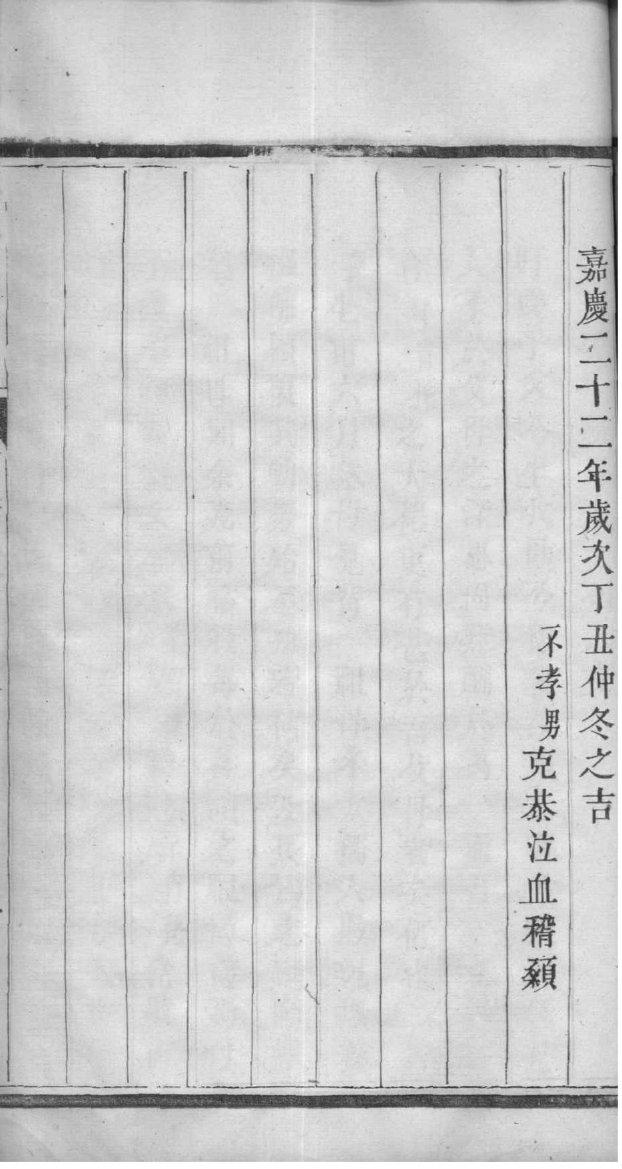 嘉慶二十二年歲次丁丑仲冬之吉
不孝男克恭泣血稽顙